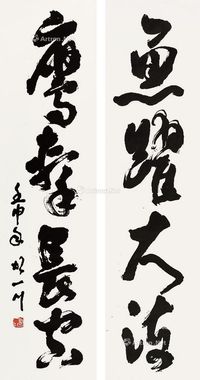 魚躍大海
鷹擊長空
壬申年 胡一川